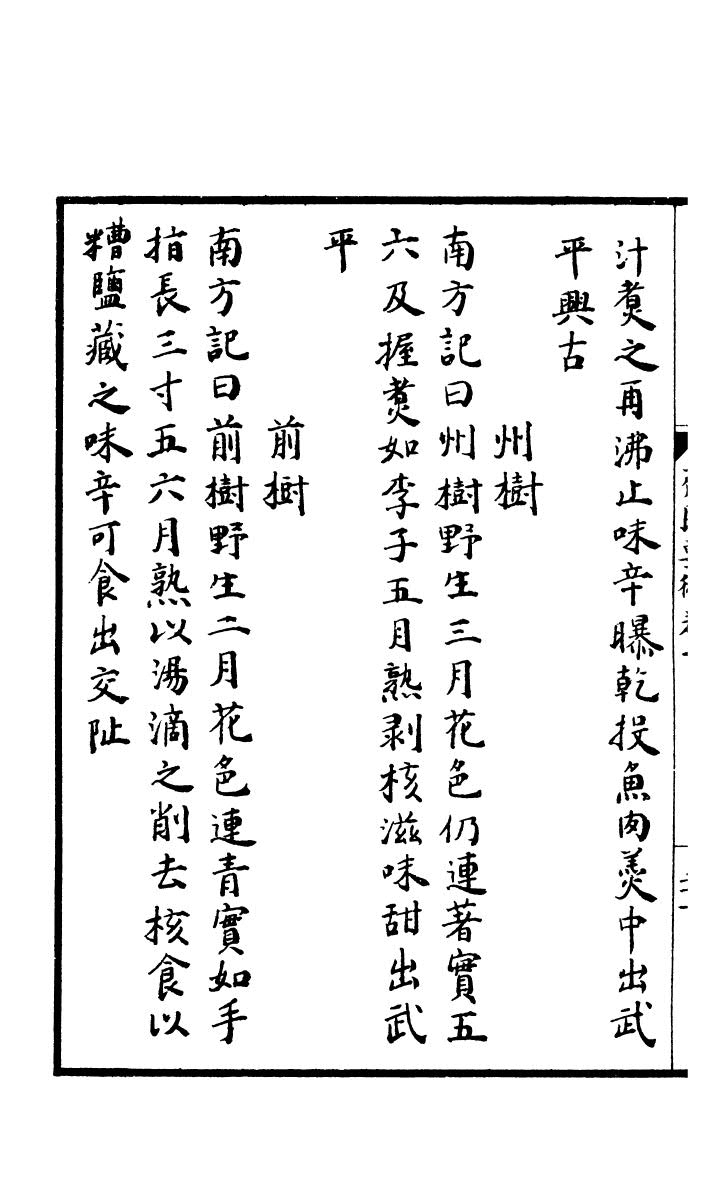 汁煑之再沸止味辛曝乾投魚肉羹中出武
平興古
州樹
南方記曰州樹野生三月花色仍連著實五
六及握煑如李子五月熟剥核滋味甜出武
平
前樹
南方記曰前樹野生二月花色連青實如手
指長三寸五六月熟以湯滴之削去核食以
糟鹽藏之味辛可食出交阯